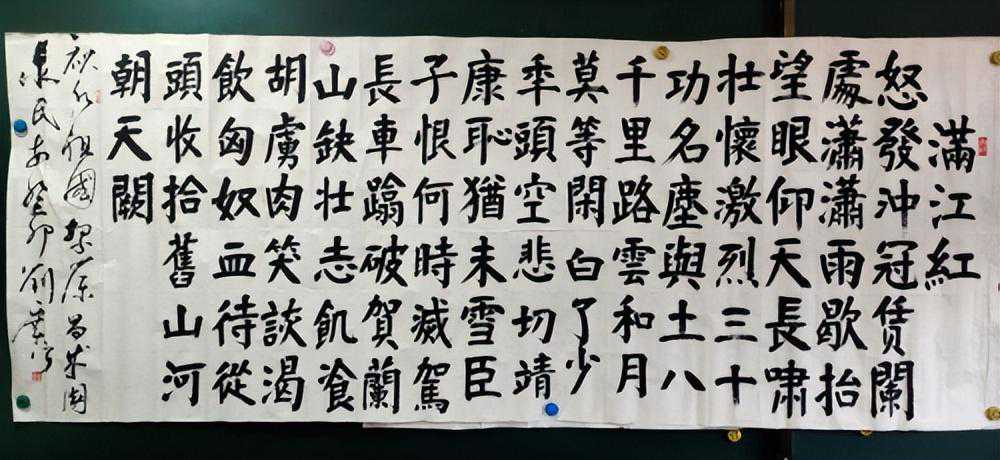 滿江紅
怒發沖冠賃闌
處瀟瀟雨歇抬
望眼仰天長嘯
壯懷激烈三十
功名塵與土八
千里路雲和月
莫等閑白了少
秊頭空悲切靖
康恥猶未雪臣
子恨何時滅駕
長車蹋破賀蘭
山缺壯志飢飡
胡虜肉笑談渴
飲匈奴血待從
頭收拾舊山河
朝天闕
祝祖國繁榮昌盛國
泰民安癸卯劉